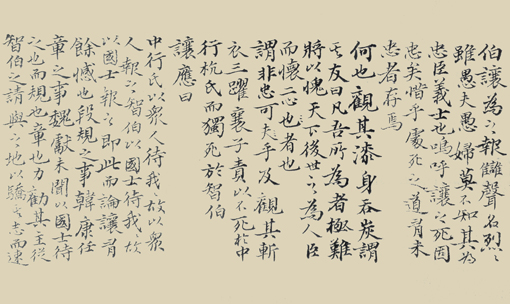 伯讓為之報讎聲名烈〻
雖愚夫愚婦莫不知其為
忠臣義士也嗚呼讓之死固
忠矣惜乎處死之道有未
忠者存焉
何也觀其漆身吞炭謂
其友曰凡吾所為者極難
將以愧天下後世之為人臣
而懷二心也者也
謂非忠可夫乎及觀其斬
衣三躍襄子責以不死於中
行杭氏而獨死於智伯
讓應曰
中行氏以眾人待我故以眾
人報之智伯以國士待我故
以國士報之即此而論讓有
餘憾也段規之事韓康任
章之事魏獻未聞以國士待
之也而規也章也力勸其主從
智伯之請與之地以驕其志而速